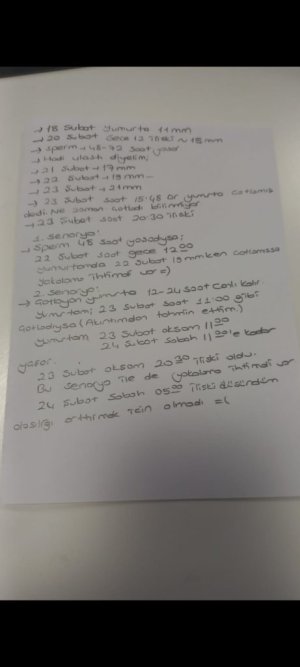 → 18 Şubat yumurta 11mm
→ 20 Şubat Gece 12 ilişki ~ 15mm
→ Sperm → 48-72 saat yaşar
→ Hadi ulaştı diyelim;
→ 21 Şubat → 17mm
→ 22 Şubat → 19mm -
→ 23 Şubat → 21mm
→ 23 Şubat saat 15:48 Dr yumurta çatlamış
dedi. Ne zaman çatladı bilinmiyor
→ 23 Şubat saat 20:30 ilişki
1. senaryo:
→ Sperm 48 saat yaşadıysa;
22 Şubat saat gece 12:00
yumurtamda 22 Şubat 19 mmiken çatlamışsa
yakalama ihtimali var =)
2. senaryo:
→ Çatlayan yumurta 12-24 saat canlı kalır
yumurtam; 23 Şubat saat 11:00 gibi
çatladıysa (Akıntımdan tahmin ettim.)
yumurtam 23 Şubat akşam 11:00
24 Şubat sabah 11:00'e kadar
yaşar.
23 Şubat akşam 20:30 ilişki oldu.
Bu senaryo ile de yakalama ihtimali var
24 Şubat Sabah 05:00 ilişki düşündüm
olasılığı arttırmak için olmadı =(